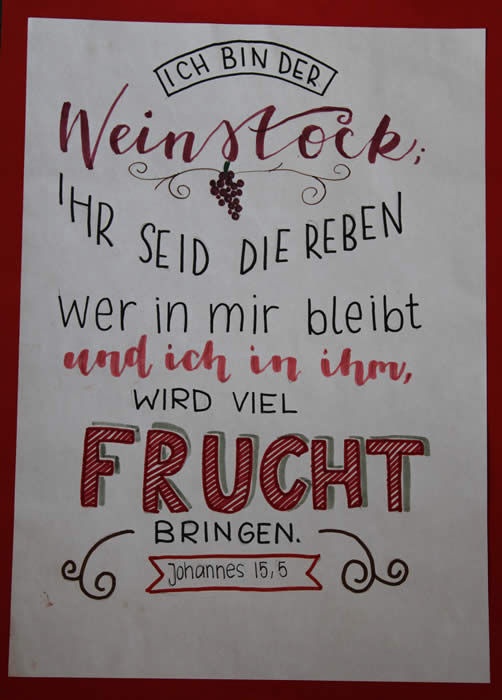 ICH BIN DER
Weinstock;
IHR SEID DIE REBEN
wer in mir bleibt
und ich in ihm,
WIRD VIEL
FRUCHT
BRINGEN.
Johannes 15,5